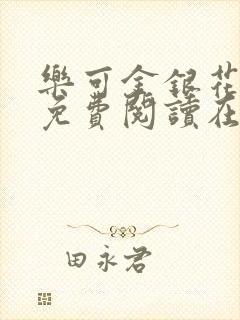 樂可金銀花
免費閱讀在
田永君